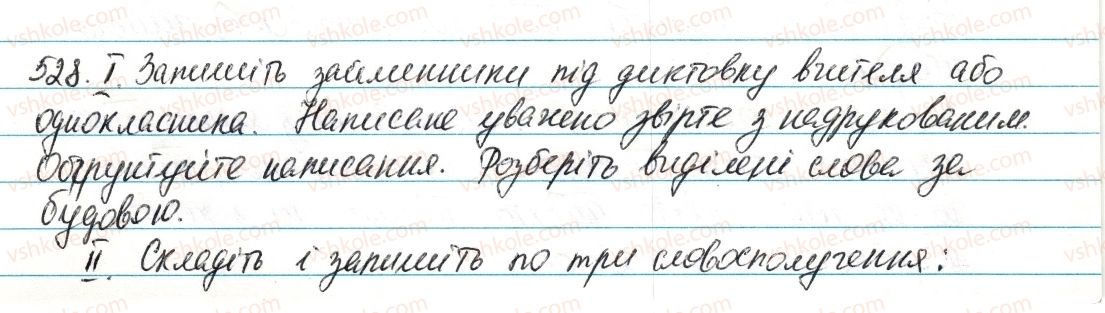 528. І. Запишіть займенники під диктовку вчителя або
однокласника. Написане уважно звірте з надрукованим.
Обґрунтуйте написання. Розберіть виділені слова за
будовою.
ІІ. Складіть і запишіть по три словосполучення: